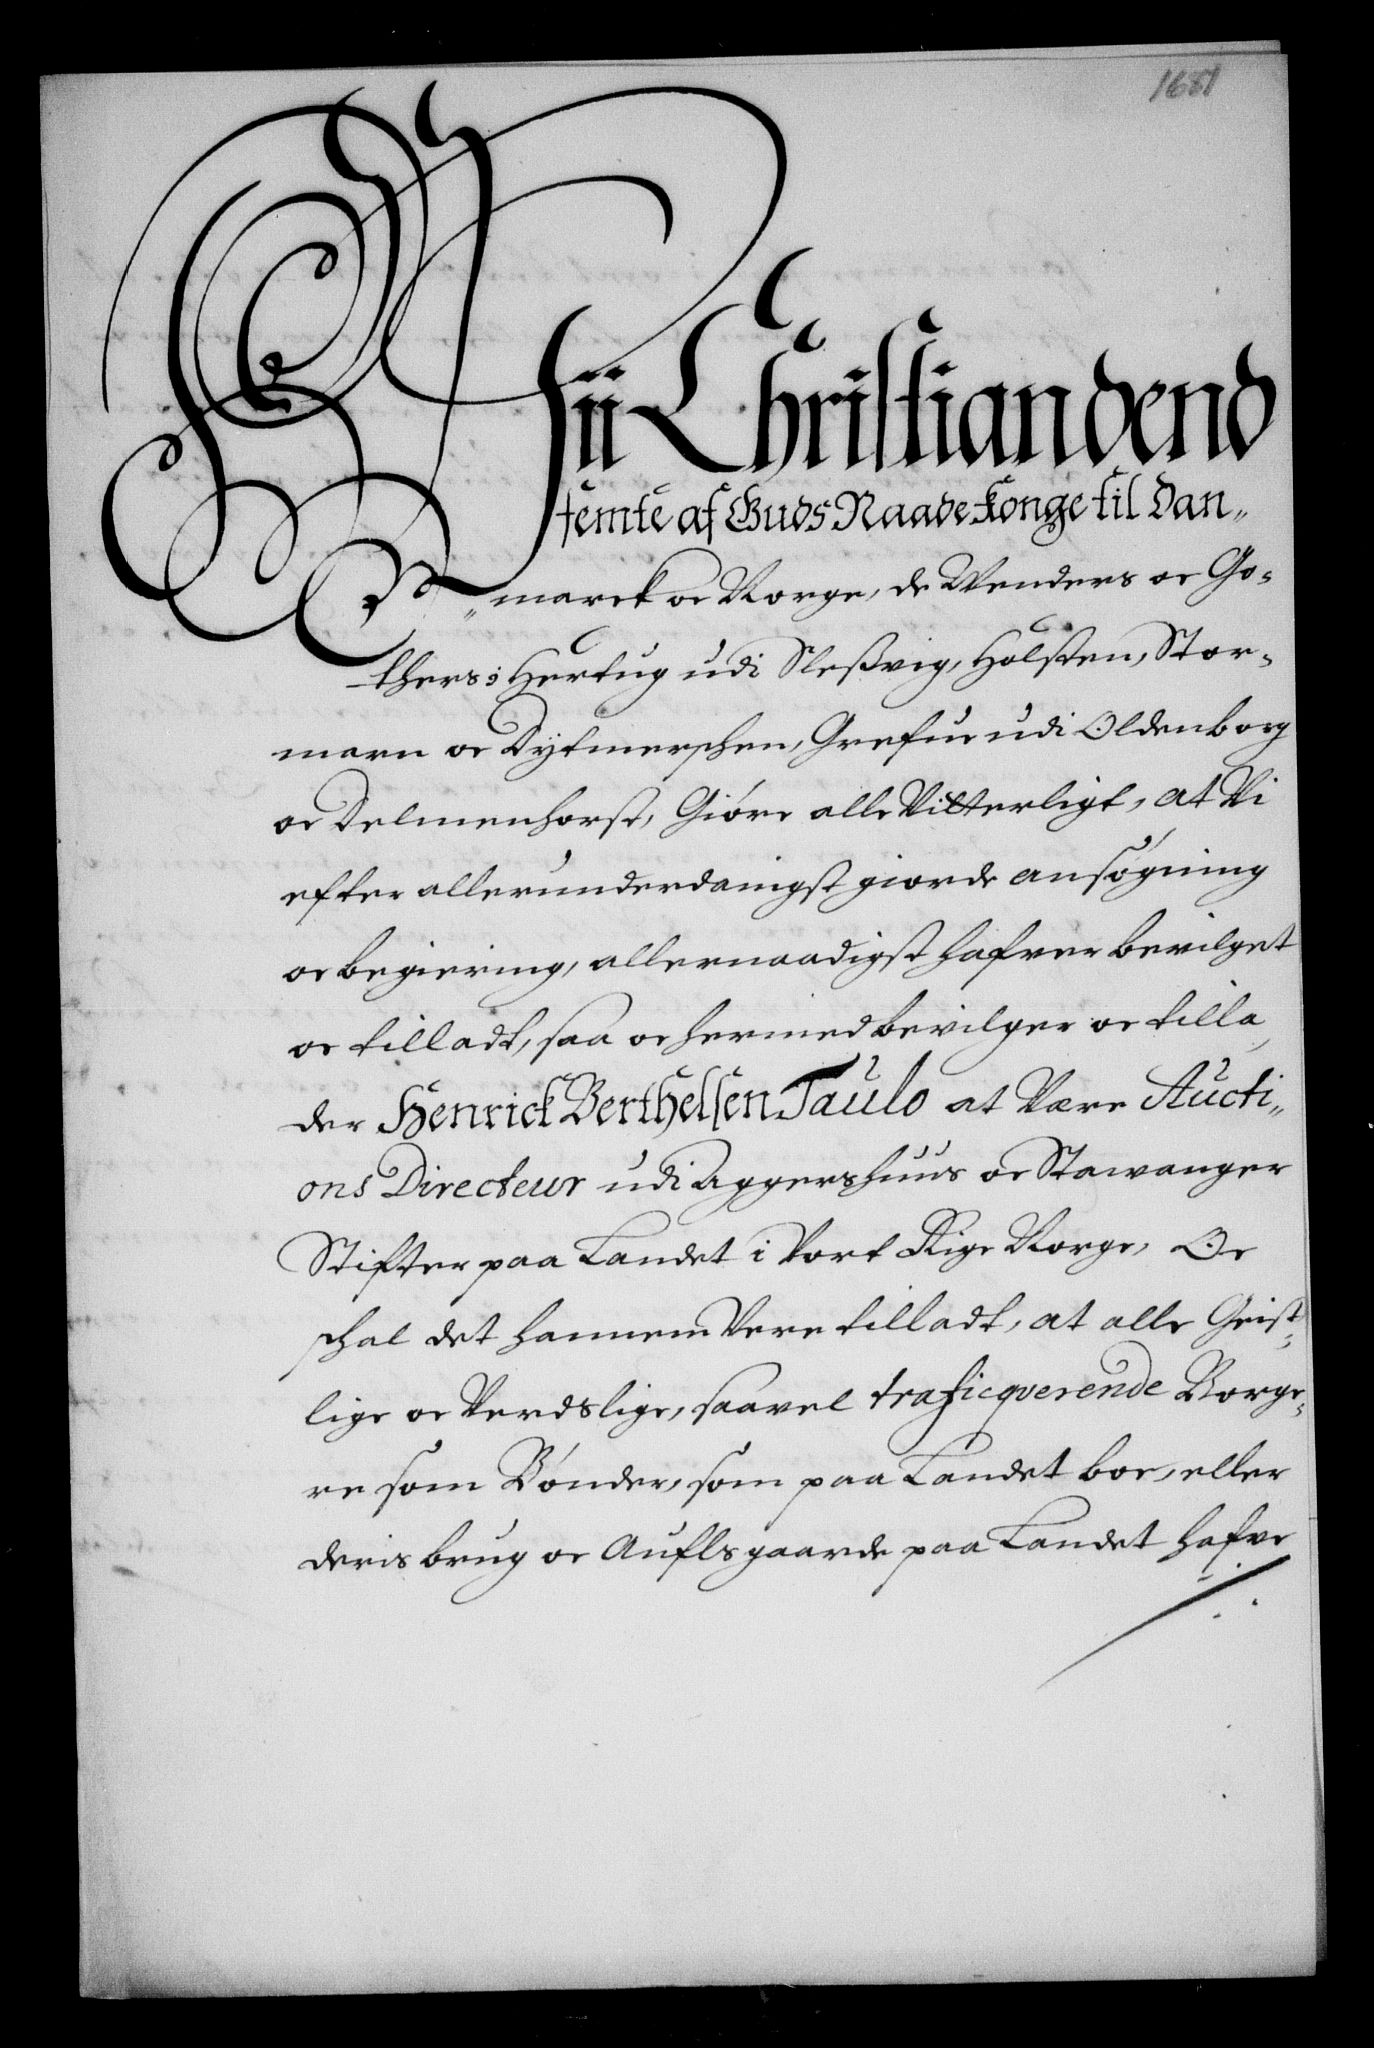 1681
Wii Christian dend
femte af Guds Naade Konge til Dan„
„marck oc Norge, de Wenders oc Go-
thers; Hertug udi Sleßvig, Holsten, Stor-
marn oc Dytmerschen, Grefue udi Oldenborg
oc Delmenhorst, Giöre alle Vitterligt, at Vi
efter allerunderdanigst giorde ansøgning
oc begiering, allernaadigst hafver bevilget
oc tilladt, saa oc hermed bevilger oc tilla„
der Henrick Berthelsen Taulo at Være Aucti„
ons Directeur udi Aggershuus oc Stawanger
Stifter paa Landet i Vort Rige Norge, Oc
schal det hannem Vere tilladt, at alle Geist„
lige oc Verdslige, saavel traficqverende Borge„
re som Bønder, som paa Landet boe, eller
deris brug oc Auflsgaarde paa Landet hafve